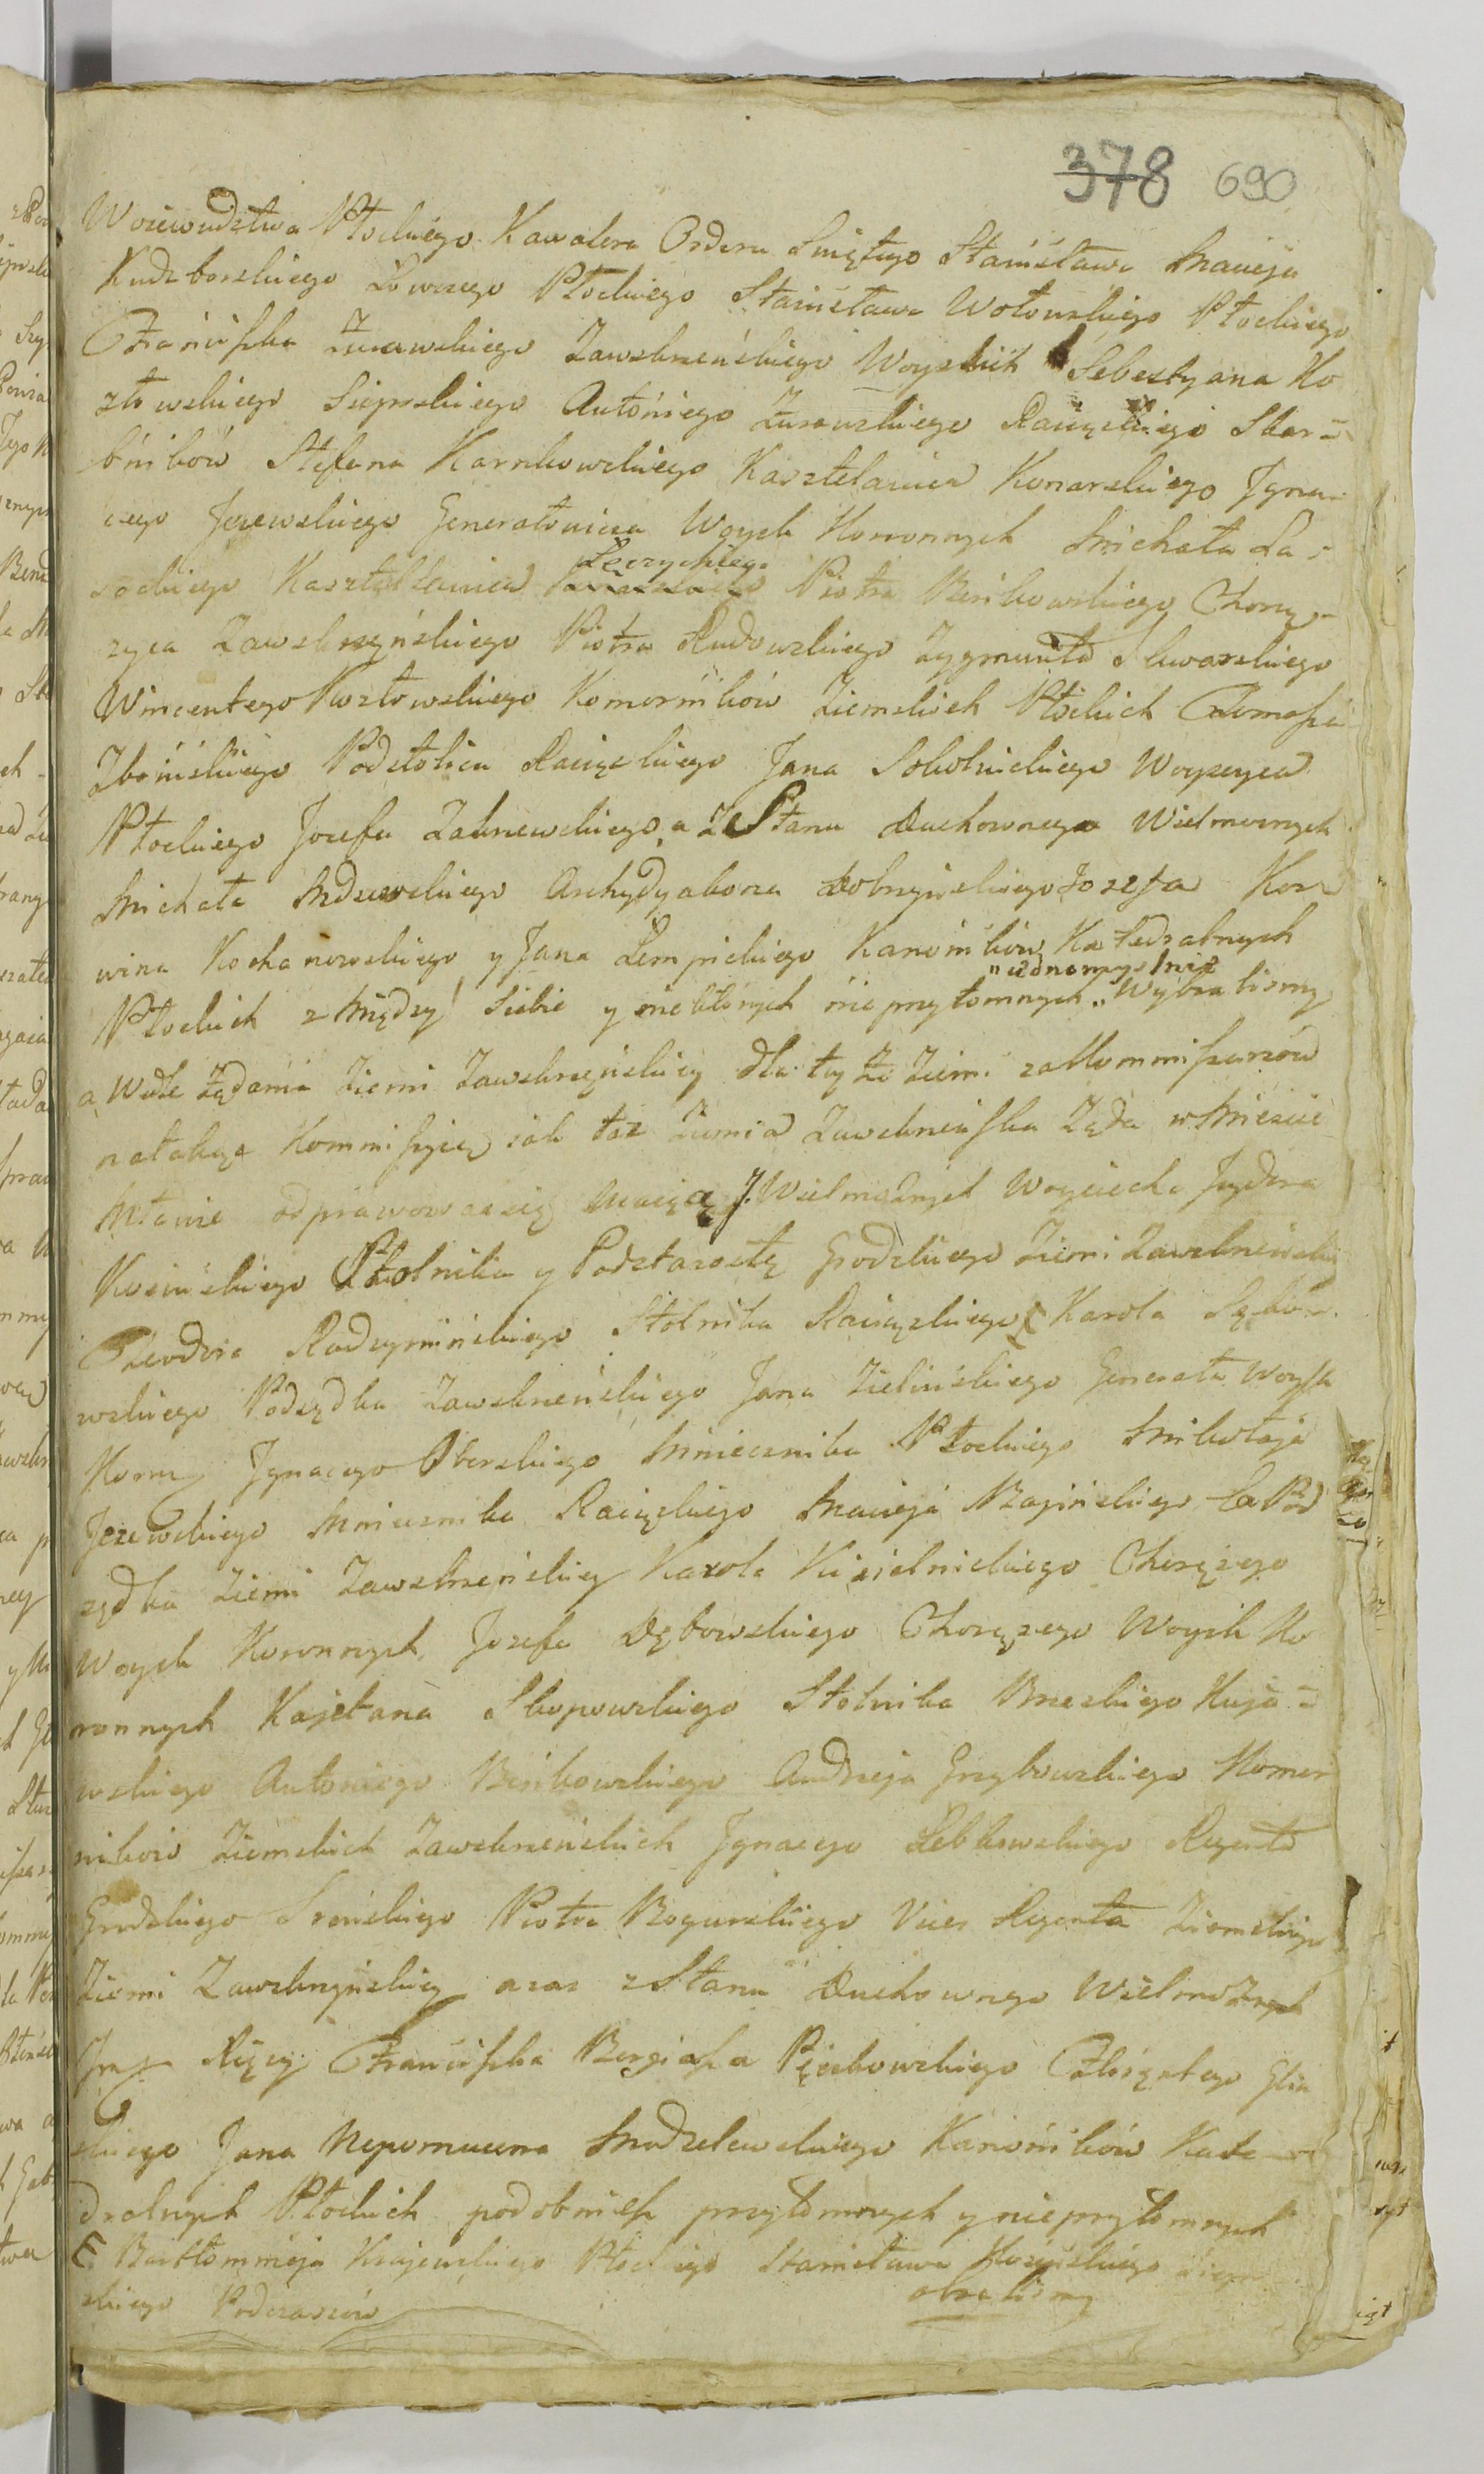 378 690
Woiewudztwa Płockiego Kawalera Orderu Swiętego Stanisława Macieja
Kudzborskiego Łowczego Płockiego Stanisława Wołowskiego Płockiego
Franciszka Zurawskiego Zawskrzeńskiego Woyskich Sebestyana Ko
złowskiego Sierpskiego Antoniego Zurawskiego Raciązkiego Skar=
bników Stefana Karnkowskiego Kasztelanica Konarskiego Igna-
cego Jezewskiego Generałowica Woysk Koronnych Michała La-
sockiego Kasztellanica Łęczyckiego Piotra Bieńkowskiego Chorą-
zyca Zawskrzyńskiego Piotra Rudowskiego Zygmunta Skwarskiego
Wincentego Kozłowskiego Komorników Ziemskich Płockich Tomasza
Zboińskiego Podstolica Raciązkiego Jana Sokolnickiego Woyszyca
Płockiego Jozefa Zakrzewskiego, a Z Stanu Duchownego Wielmoznych
Michała Mdzewskiego Archydyakona Dobrzyńskiego Jozefa Kor
wina Kochanowskiego y Jana Lempickiego Kanoników Katedralnych
"iednomyslnie
Płockich z Między Siebie y niektórych nieprzytomnych " Wybralismy
a Wedle Ządania Ziemi Zawskrzyńskiey dla tey Ze Ziemi za Kommissarzów
na takąz Kommissyią iak taz Ziemia Zawskrzeńska Ząda w Miescie
Mławie odprawowac się Maiącą J. Wielmoznych Woyciecha Izydora
Kosińskiego Stolnika y Podstarostę Grodzkiego Ziemi Zawskrzeńskiey
Teodora Radzyminskiego Stolnika Raciązkiego E Karola Sębo-
wskiego Podsędka Zawskrzeńskiego Jana Zielińskiego Generała Woysk
Koron Ignacego Oborskiego Miecznika Płockiego Mikołaja
Jezewskiego Miecznika Raciązkiego Macieja Bagińskiego Ex Pod
sędka Ziemi Zawskrzeńskiey Karola Kisielnickiego Chorązego
Woysk Koronnych, Jozefa Dębowskiego Chorązego Woysk Ko
ronnych Kajetana Skupowskiego Stolnika Brzeskiego Kuja=
wskiego Antoniego Bieńkowskiego Andrzeja Grzybowskiego Komor
ników Ziemskich Zawskrzeńskich Ignacego Łebkowskiego Regenta
Grodzkiego Sreńskiego Piotra Bogurskiego Vices Regenta Ziemskiego
Ziemi Zawskrzyńskiey oraz z Stanu Duchownego Wielmoznych
Xięzy Franciszka Pęczkowskiego Glin
skiego Jana Nepomucena Modzelewskiego Kanoników Kate-
dralnych Płockich podobniesz przytomnych y nieprzytomnych
E Bartłomieja Krajewskiego Płockiego Stanisława Kosińskiego Sierp
skiego Podczaszów obralismy